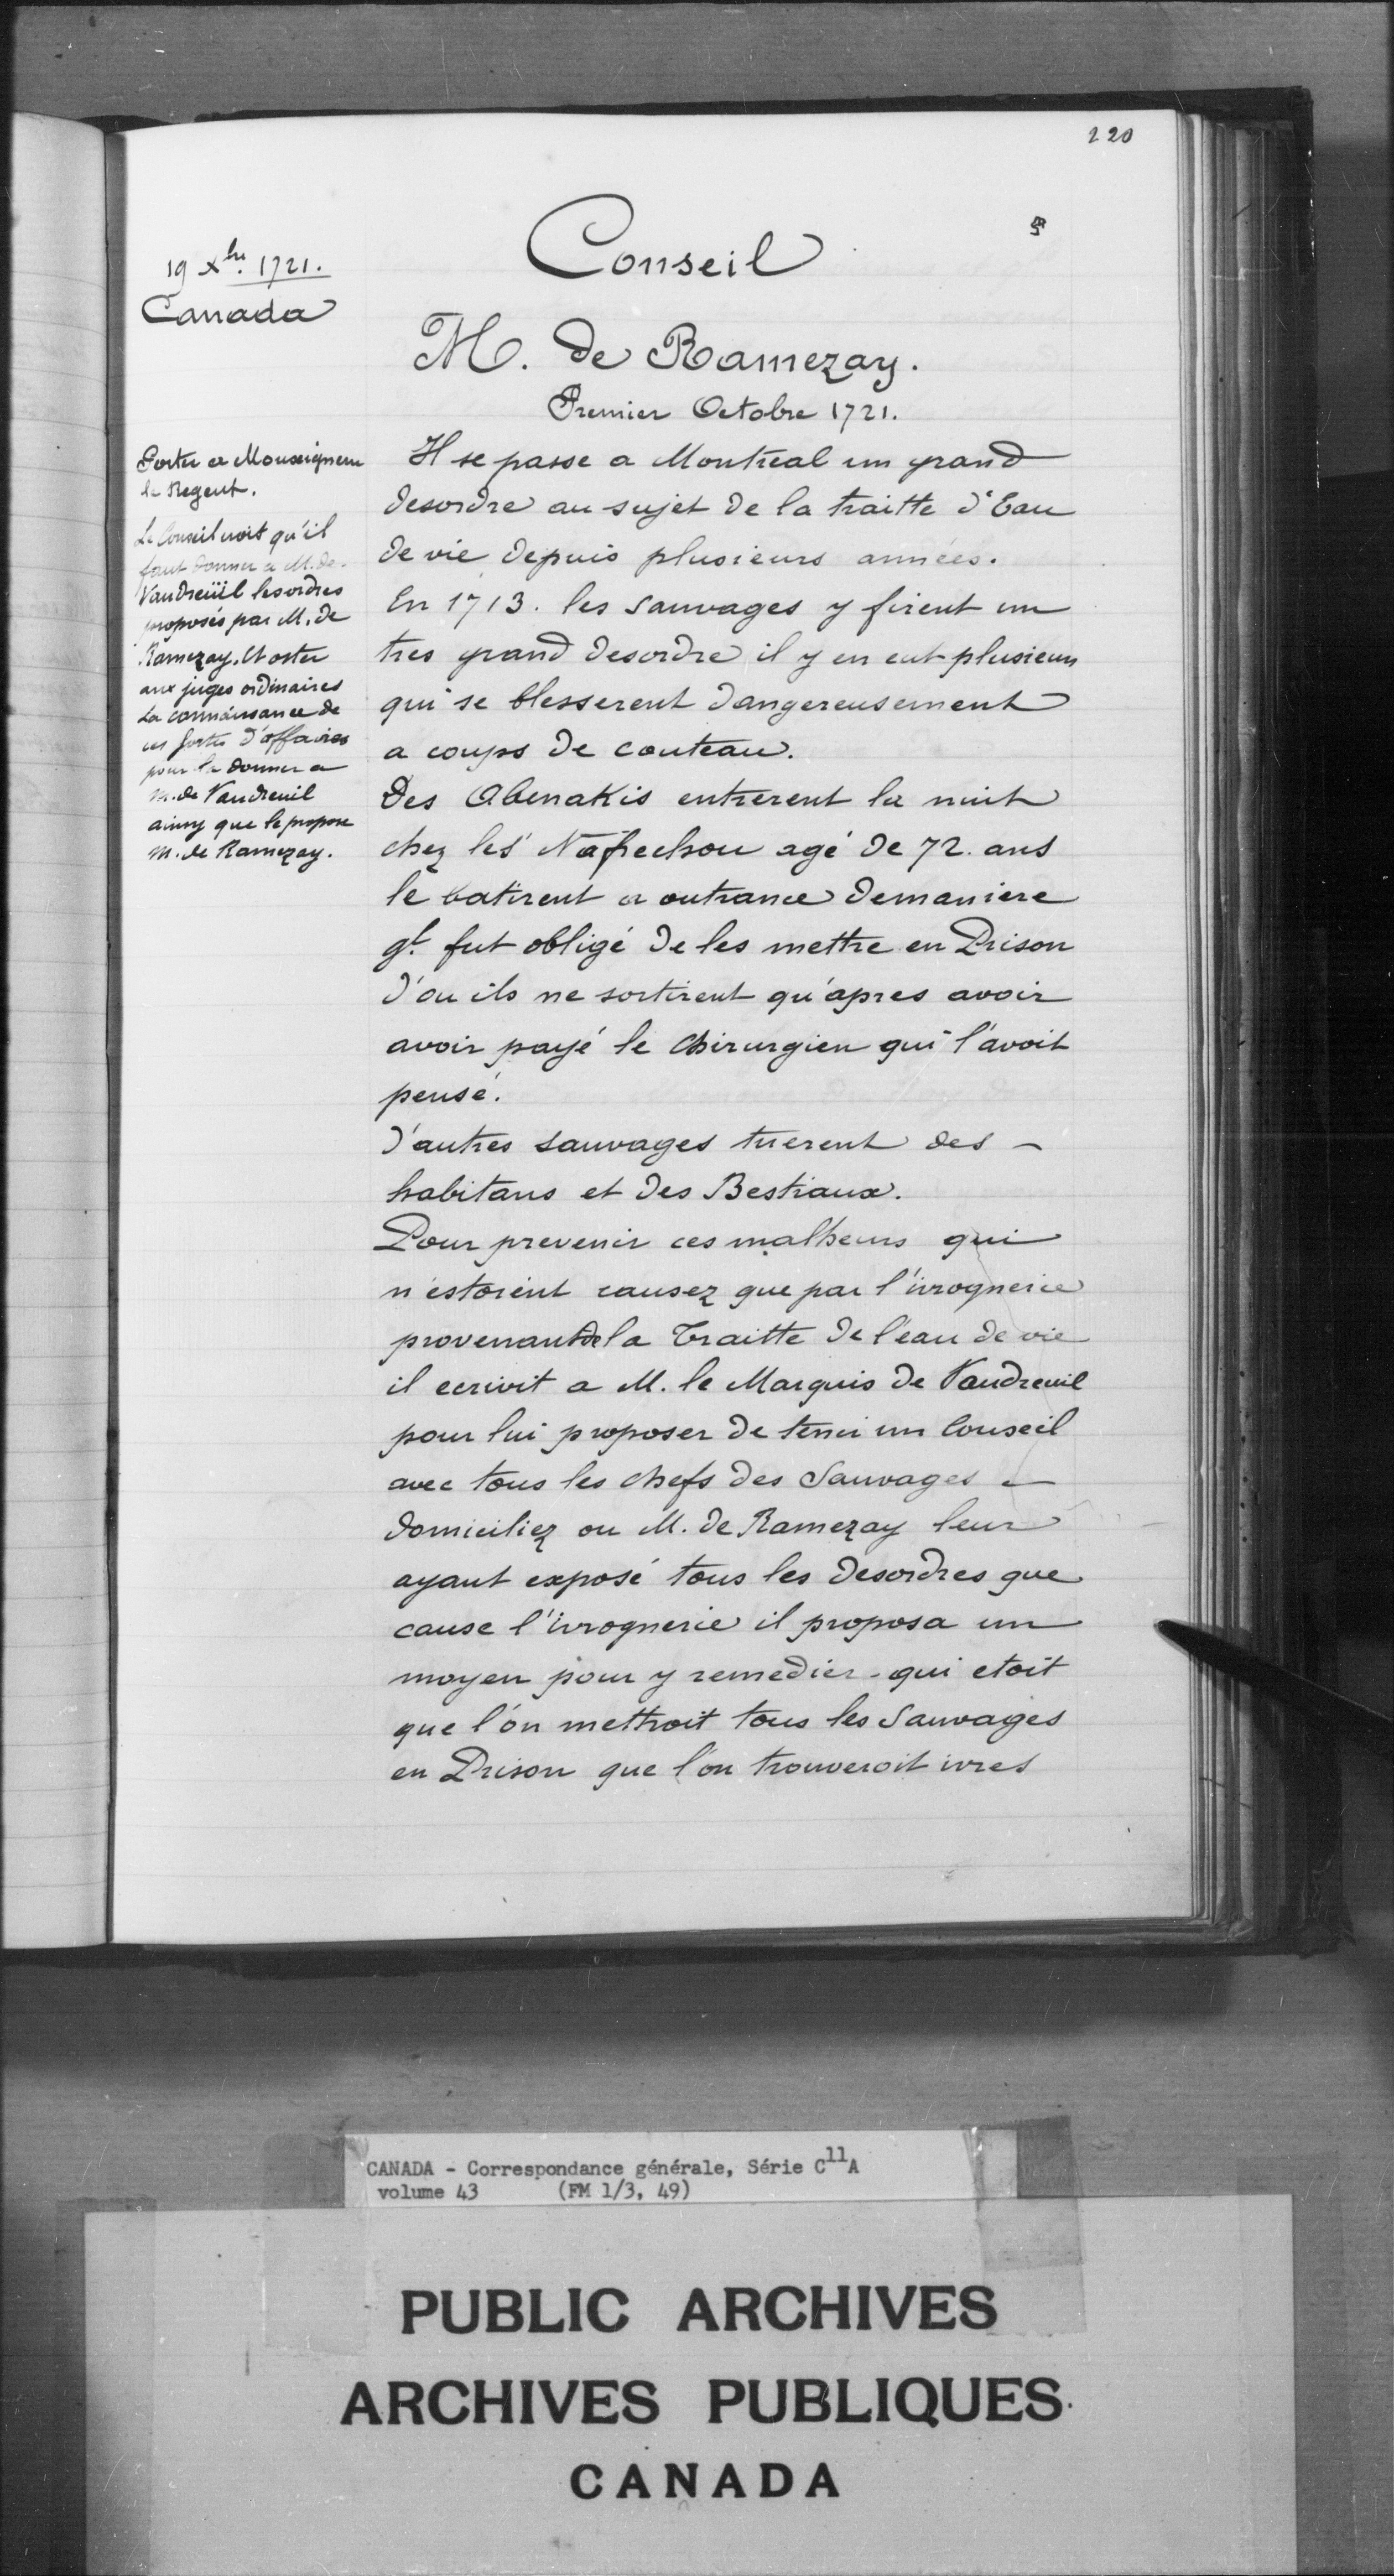 220
19 Xbre. 1721.
Canada
Conseil
M. de Ramezay.
Premier Octobre 1721.
Porter a Monseigneur
le Regent.
Le Conseil croit qu'il
faut donner a M. de
Vandreüil les ordres
proposés par M. de
Ramezay. Et oster
aux juges ordinaires
La connoissance de
ces sortes d'affaires
pour la donner a
M. de Vaudreuil
ainsy que le propose
M. de Ramezay.
Il se passe a Montreal un grand
desordre au sujet de la traitte d'Eau
de vie depuis plusieurs années.
En 1713. les Sauvages y firent un
tres grand desordre il y en eut plusieurs
qui se blesserent dangereusement
a coups de couteau.
Des Abenakis entrerent la nuit
chez les Nafrechou agé de 72. ans
le batirent a outrance de maniere
ql. fut obligé de les mettre en Prison
d'ou ils ne sortirent qu'apres avoir
avoir payé le Chirurgien qui l'avoit
pensé.
D'autres sauvages tuerent des
habitans et des Bestiaux.
Pour prevenir ces malheurs qui
n'estoient causez que par l'ivrognerie
provenant de la Traitte de l'eau de vie
il ecrivit a M. le Marquis de Vaudreuil
pour lui proposer de tenir un Conseil
avec tous les chefs des Sauvages
domiciliez ou M. de Ramezay leur
ayant exposé tous les desordres que
cause l'ivrognerie il proposa un
moyen pour y remedier - qui etoit
que l'on mettroit tous les Sauvages
en Prison que l'on trouveroit ivres
CANADA - Correspondance générale, Série C11A
volume 43 (FM 1/3, 49)
PUBLIC ARCHIVES
ARCHIVES PUBLIQUES
CANADA